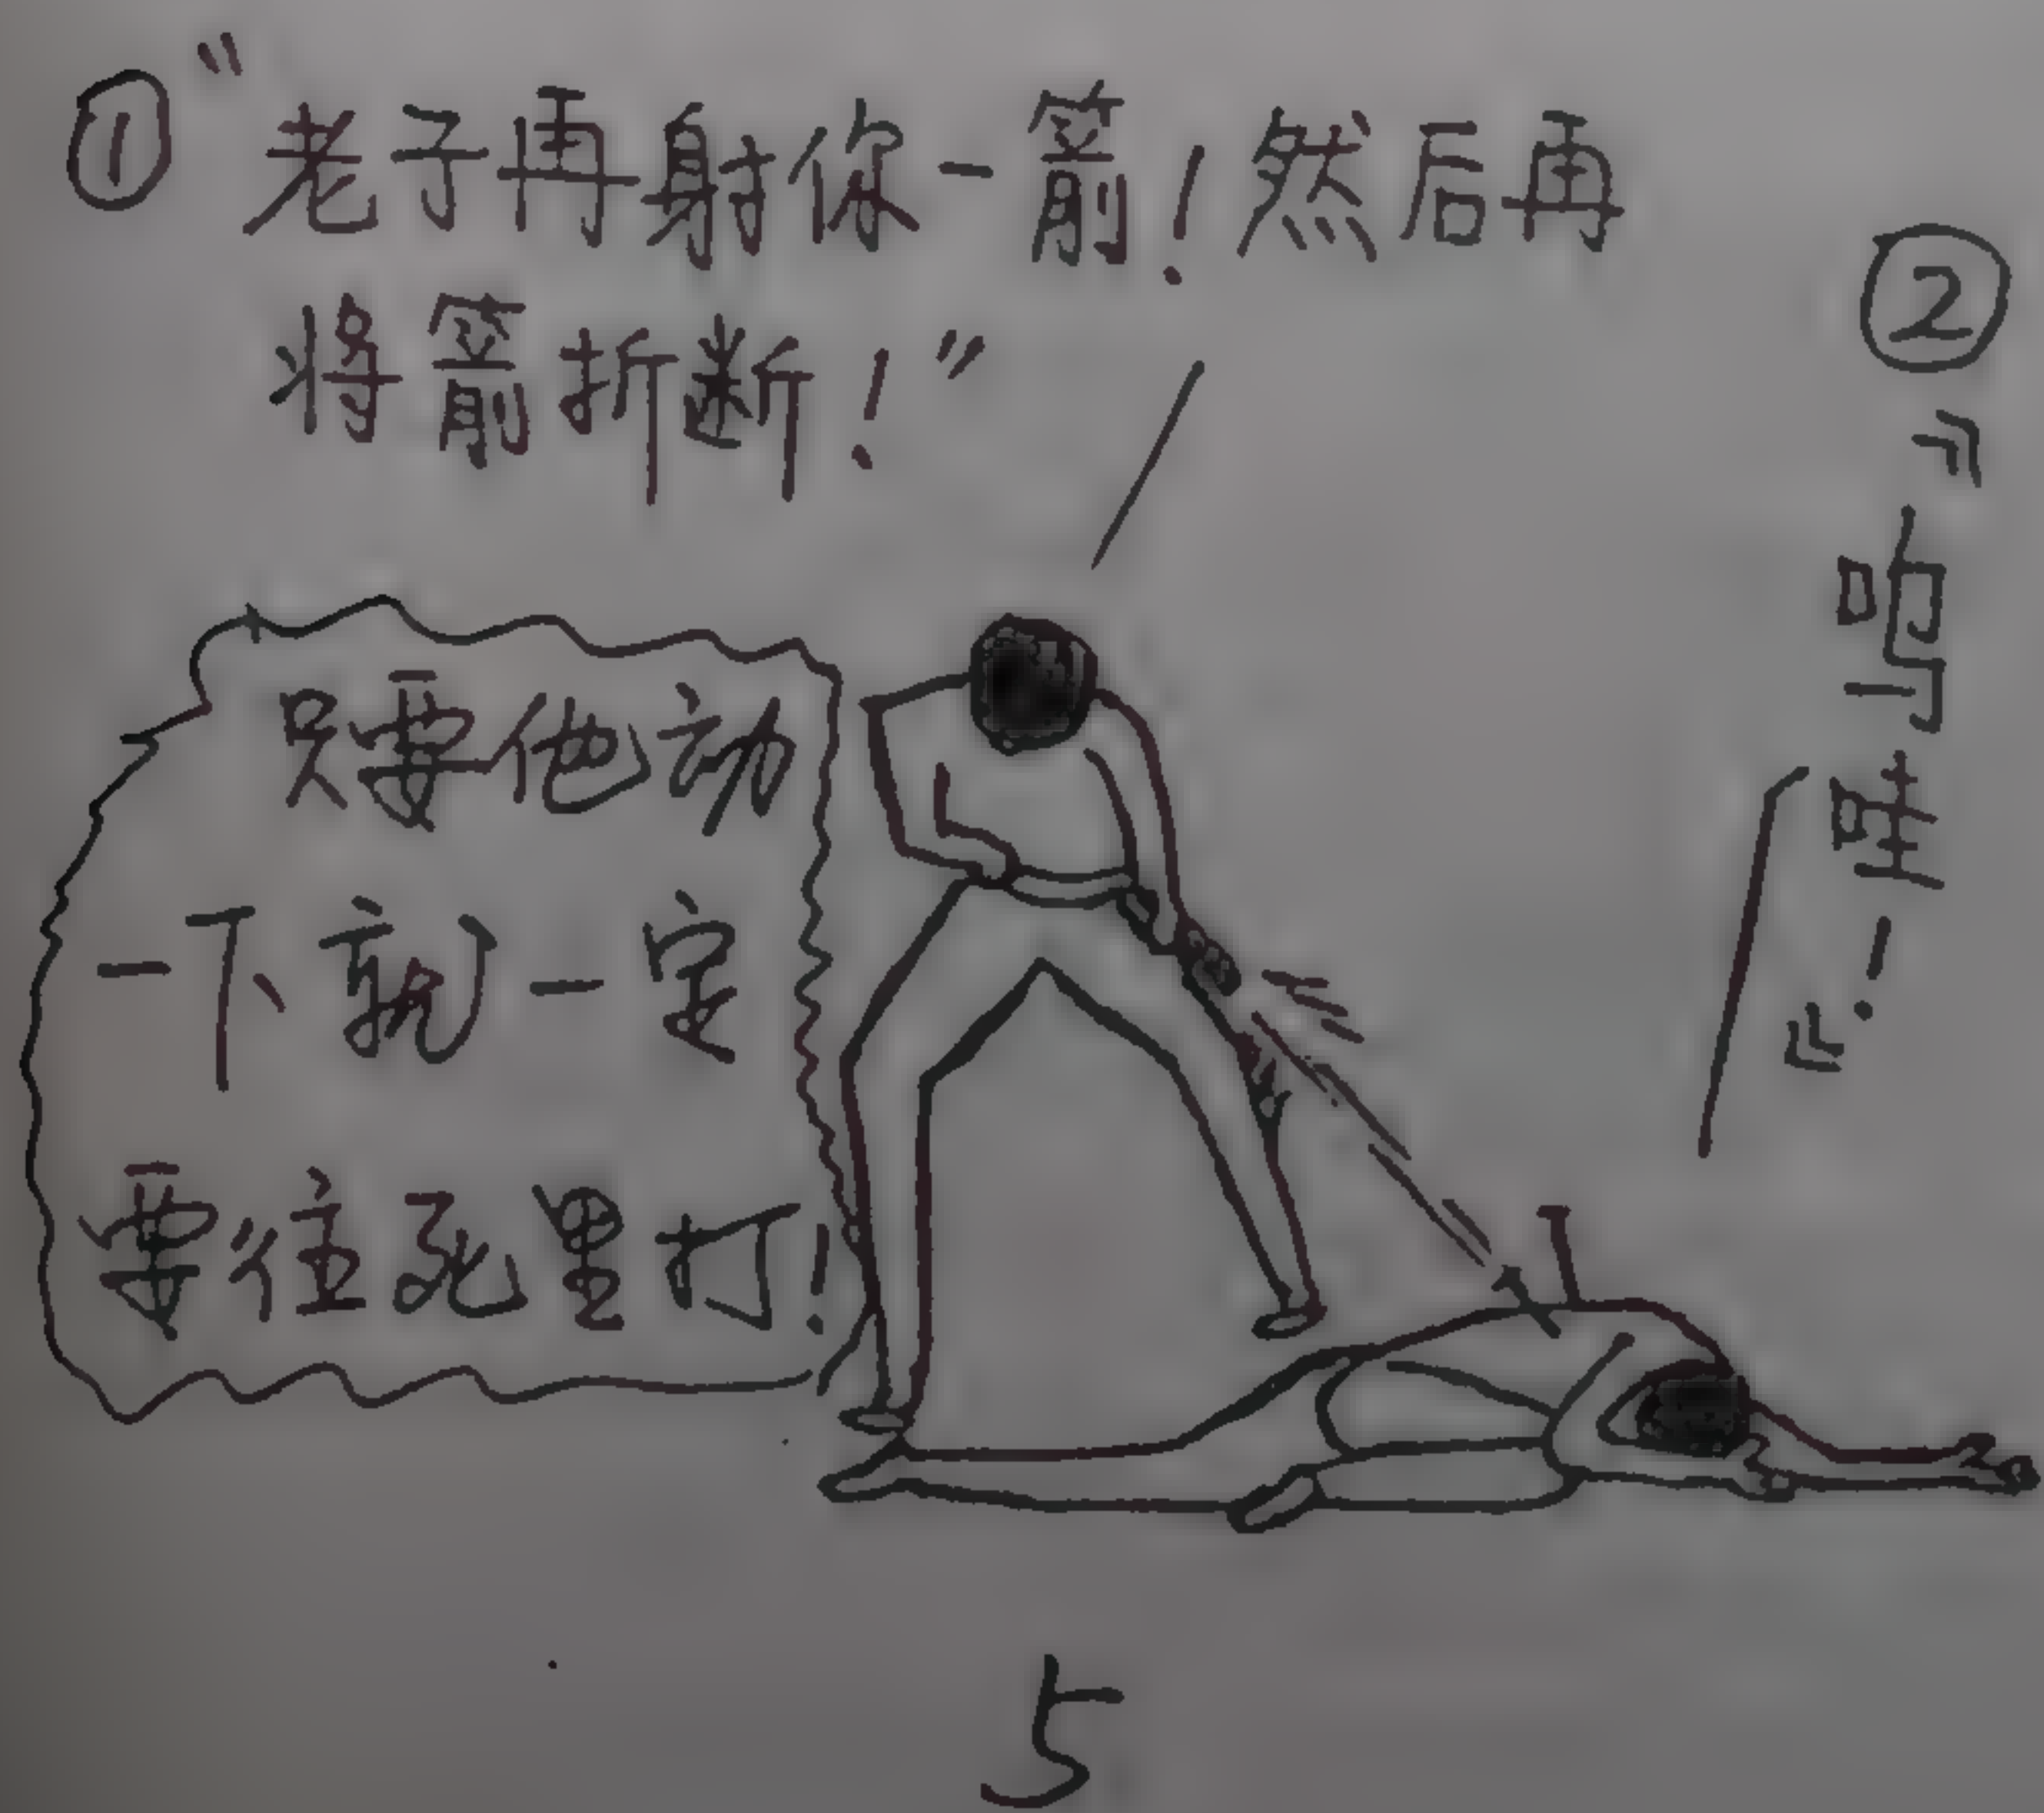 ① “老子再射你一箭！然后再
将箭折断！”
②
“呜哇！”
只要他动
一下就一定
要往死里打！
5